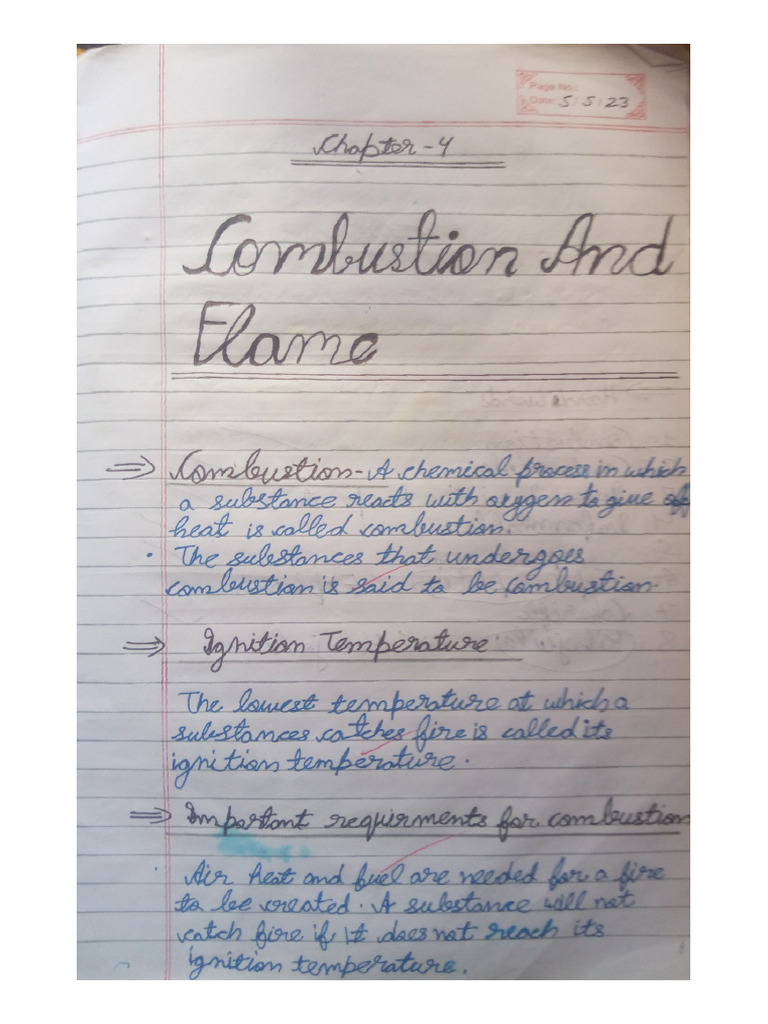 Page No.:
Date: 5/5/23
Chapter-4
Combustion And
Flame
⇒ Combustion- A chemical process in which
a substance reacts with oxygen to give off
heat is called combustion.
• The substances that undergoes
combustion is said to be combustion.
⇒ Ignition Temperature
The lowest temperature at which a
substances catches fire is called its
ignition temperature.
⇒ Important requirments for combustion
Air heat and fuel are needed for a fire
to be created. A substance will not
catch fire if it does not reach its
ignition temperature.